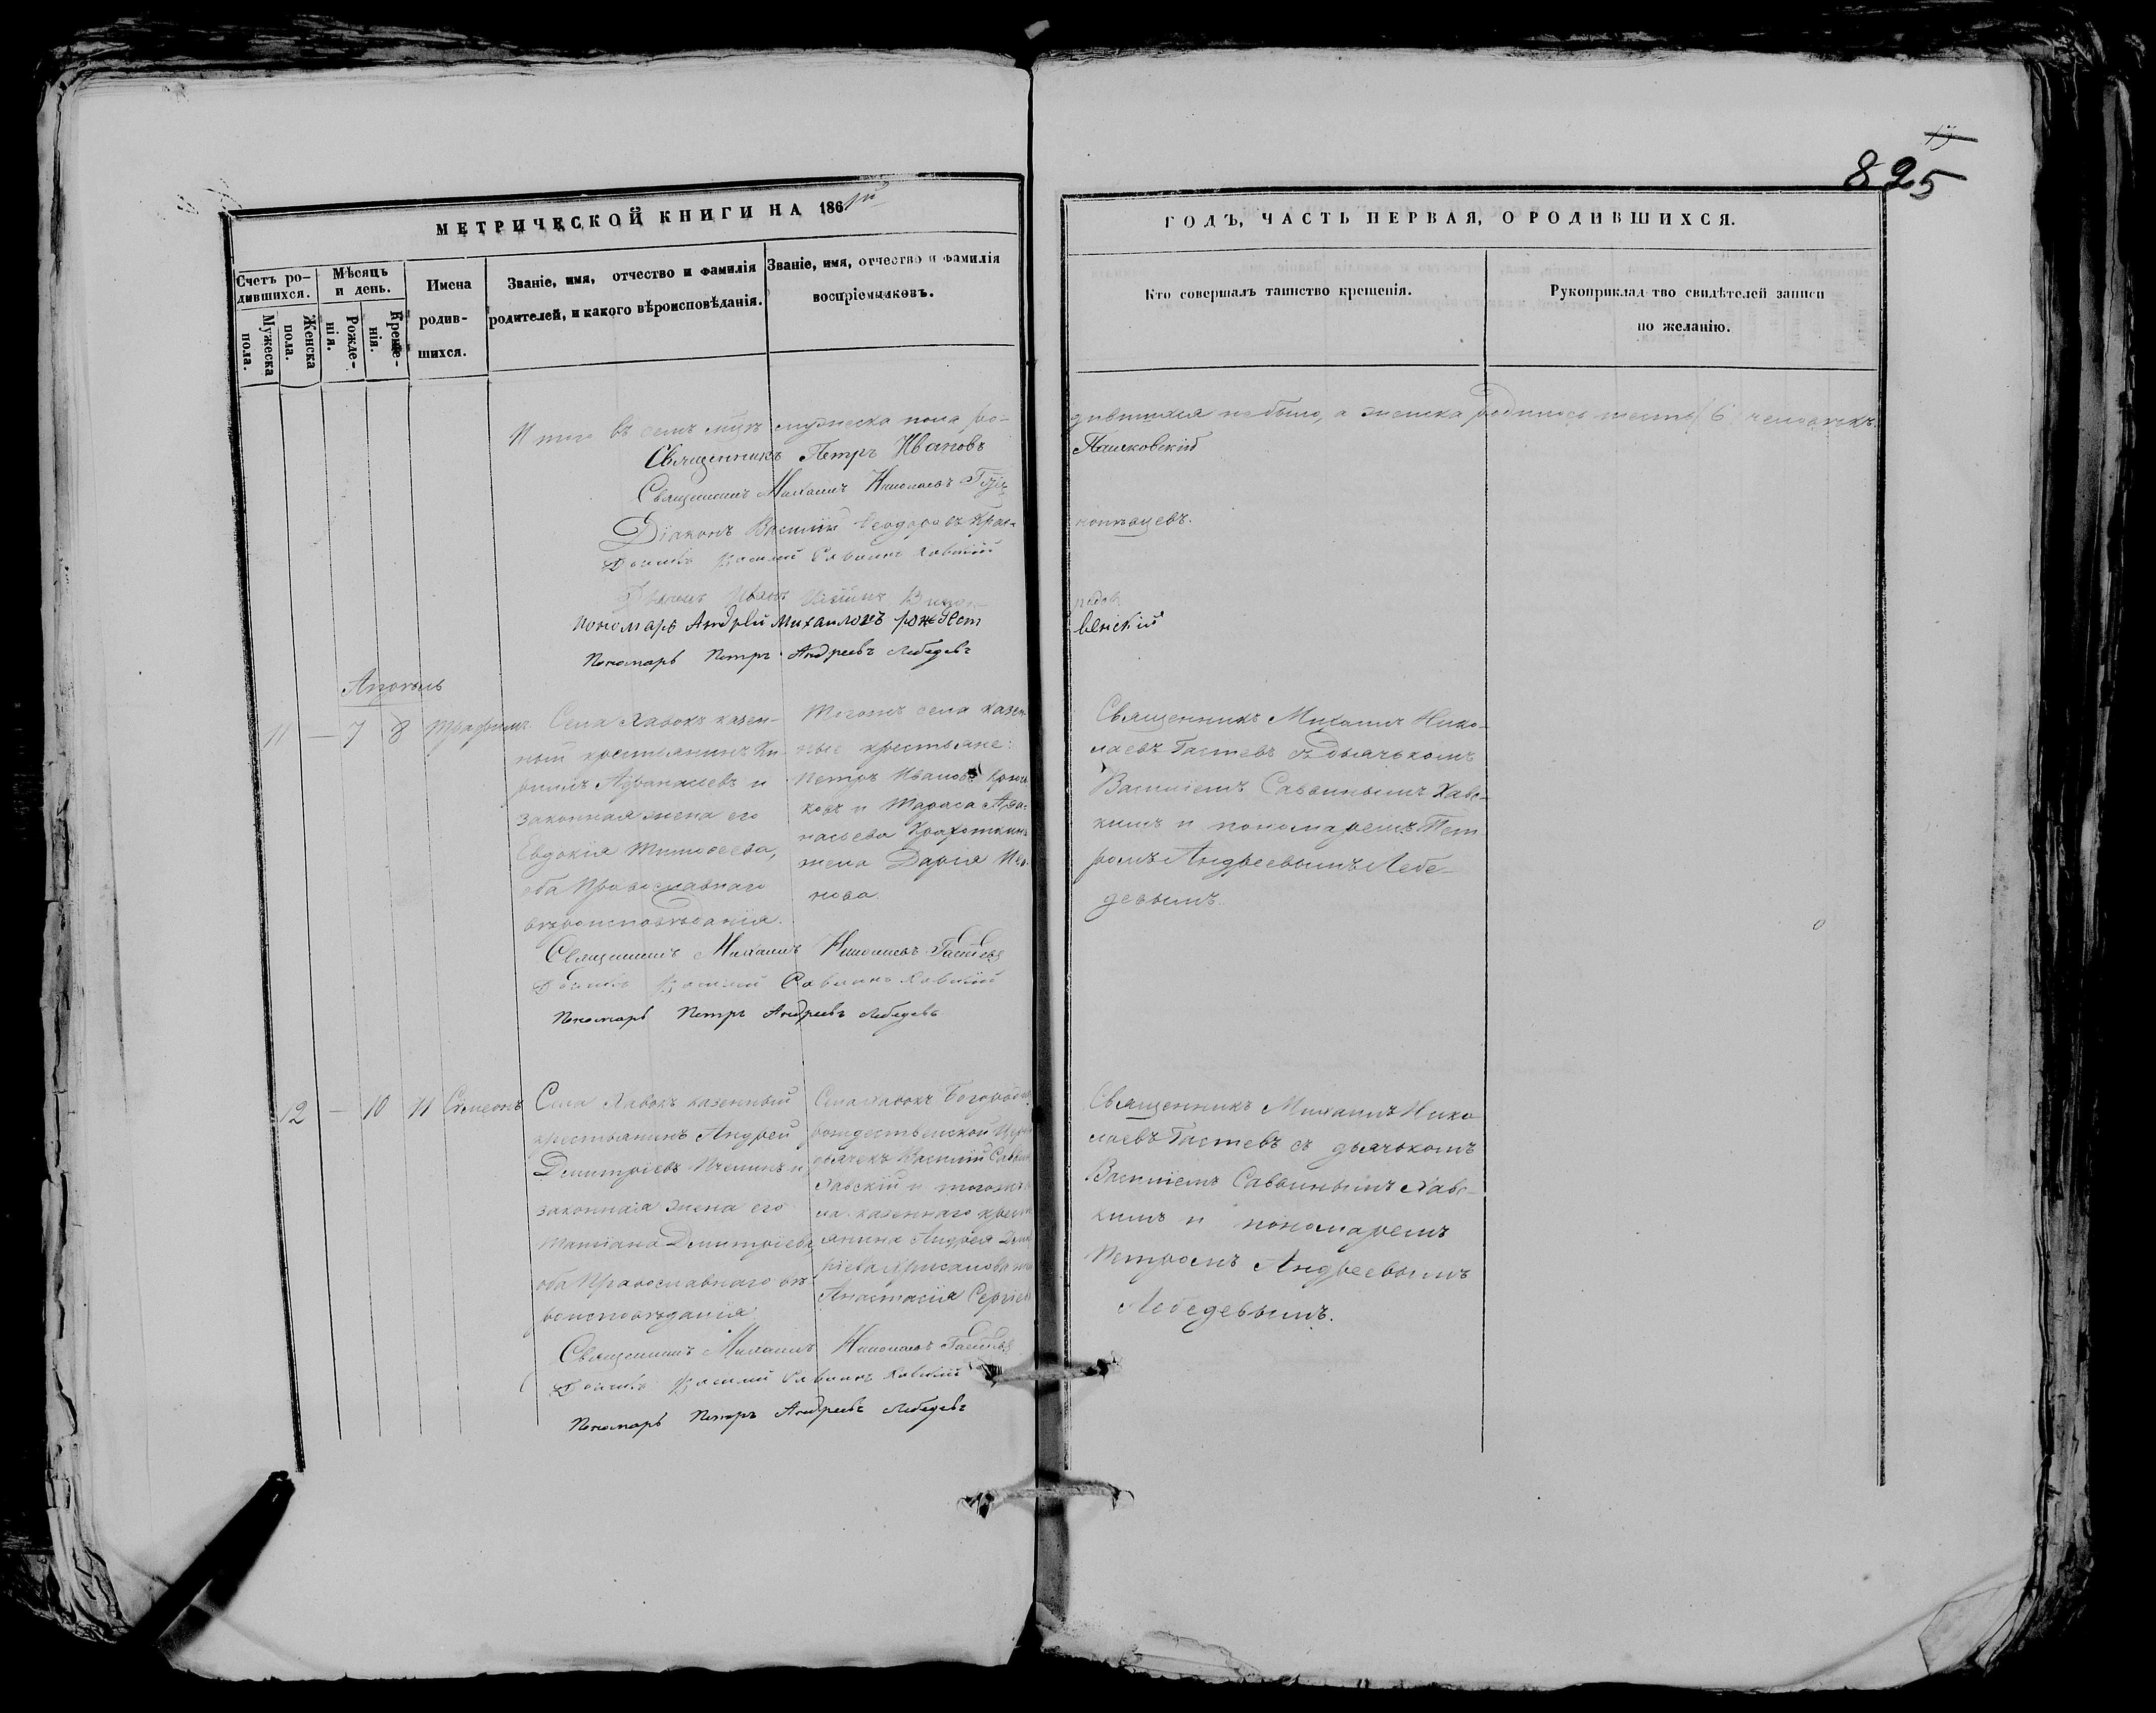 825
МЕТРИЧЕСКОЙ КНИГИ НА 186
ГОДЪ, ЧАСТЬ ПЕРВАЯ, О РОДИВШИХСЯ.
Счетъ ро-
дившихся.
Мужеска
пола.
Женска
пола.
Мѣсяцъ
и день.
Рожде-
нія.
Креще-
нія.
Имена
родив-
шихся.
Званіе, имя, отчество и фамилія
родителей, и какого вѣроисповѣданія.
Званіе, имя, отчество и фамилія
воспріемниковъ.
Кто совершалъ таинство крещенія.
Рукоприклад тво свидѣтелей записи
по желанію.
Итого въ семъ мужеска пола ро-
дившихся небыло, а женска родилось шесть (6) человѣкъ.
Священникъ Петръ Ивановъ
Священникъ Михаилъ Николаевъ
Діаконъ Василій Ѳеодоровъ
Василій Саввинъ Хавскій
Пономарь Андрей Михаиловъ рождест
венскій
Пономарь Петръ Андреевъ Лебедевъ
11 — 7 8
Села Хавокъ казен-
ный крестьянинъ Ки-
риллъ Аѳанасьевъ и
законная жена его
Евдокія Тимоѳеева,
оба Православнаго
вѣроисповѣданія.
Тогожъ села казен-
ные крестьяне:
Петръ Ивановъ
и Тараса Аѳа-
насьева
жена Дарія Ива-
нова.
Священникъ Михаилъ Нико-
лаевъ Гастевъ съ дьячькомъ
Василіемъ Саввинымъ Хавс-
кимъ и пономаремъ Пет-
ромъ Андреевымъ Лебе-
девымъ.
Священникъ Михаилъ Николаевъ Гастевъ
Василій Саввинъ Хавскій
Пономарь Петръ Андреевъ Лебедевъ
12 — 10 11 Сѵмеонъ
Села Хавокъ казенный
крестьянинъ Андрей
Димитріевъ и
законная жена его
Татіана Димитріева,
оба Православнаго вѣ-
роисповѣданія
Села Хавокъ Богородице
рождественской
дьячекъ Василій
Хавскій и тогожъ
ла казеннаго крест
янина Андрея
Анастасія
Священникъ Михаилъ Нико
лаевъ Гастевъ съ дьячькомъ
Василіемъ Саввинымъ Хавс-
кимъ и пономаремъ
Петромъ Андреевымъ
Лебедевымъ.
Священникъ Михаилъ Николаевъ Гастевъ
Василій Саввинъ Хавскій
Пономарь Петръ Андреевъ Лебедевъ